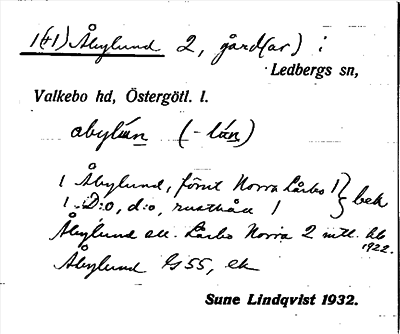 1(+1) Åbylund 2, gård(ar) i
Ledbergs sn,
Valkebo hd, Östergötl. l.
abylún (-lún)
1 Åbylund, förut Norra Lårbo 1 } bek
1 D:o, d:o, rusthåll 1
Åbylund ell. Lårbo Norra 2 mtl. Jb
1922.
Åbylund G 55, ek
Sune Lindqvist 1932.